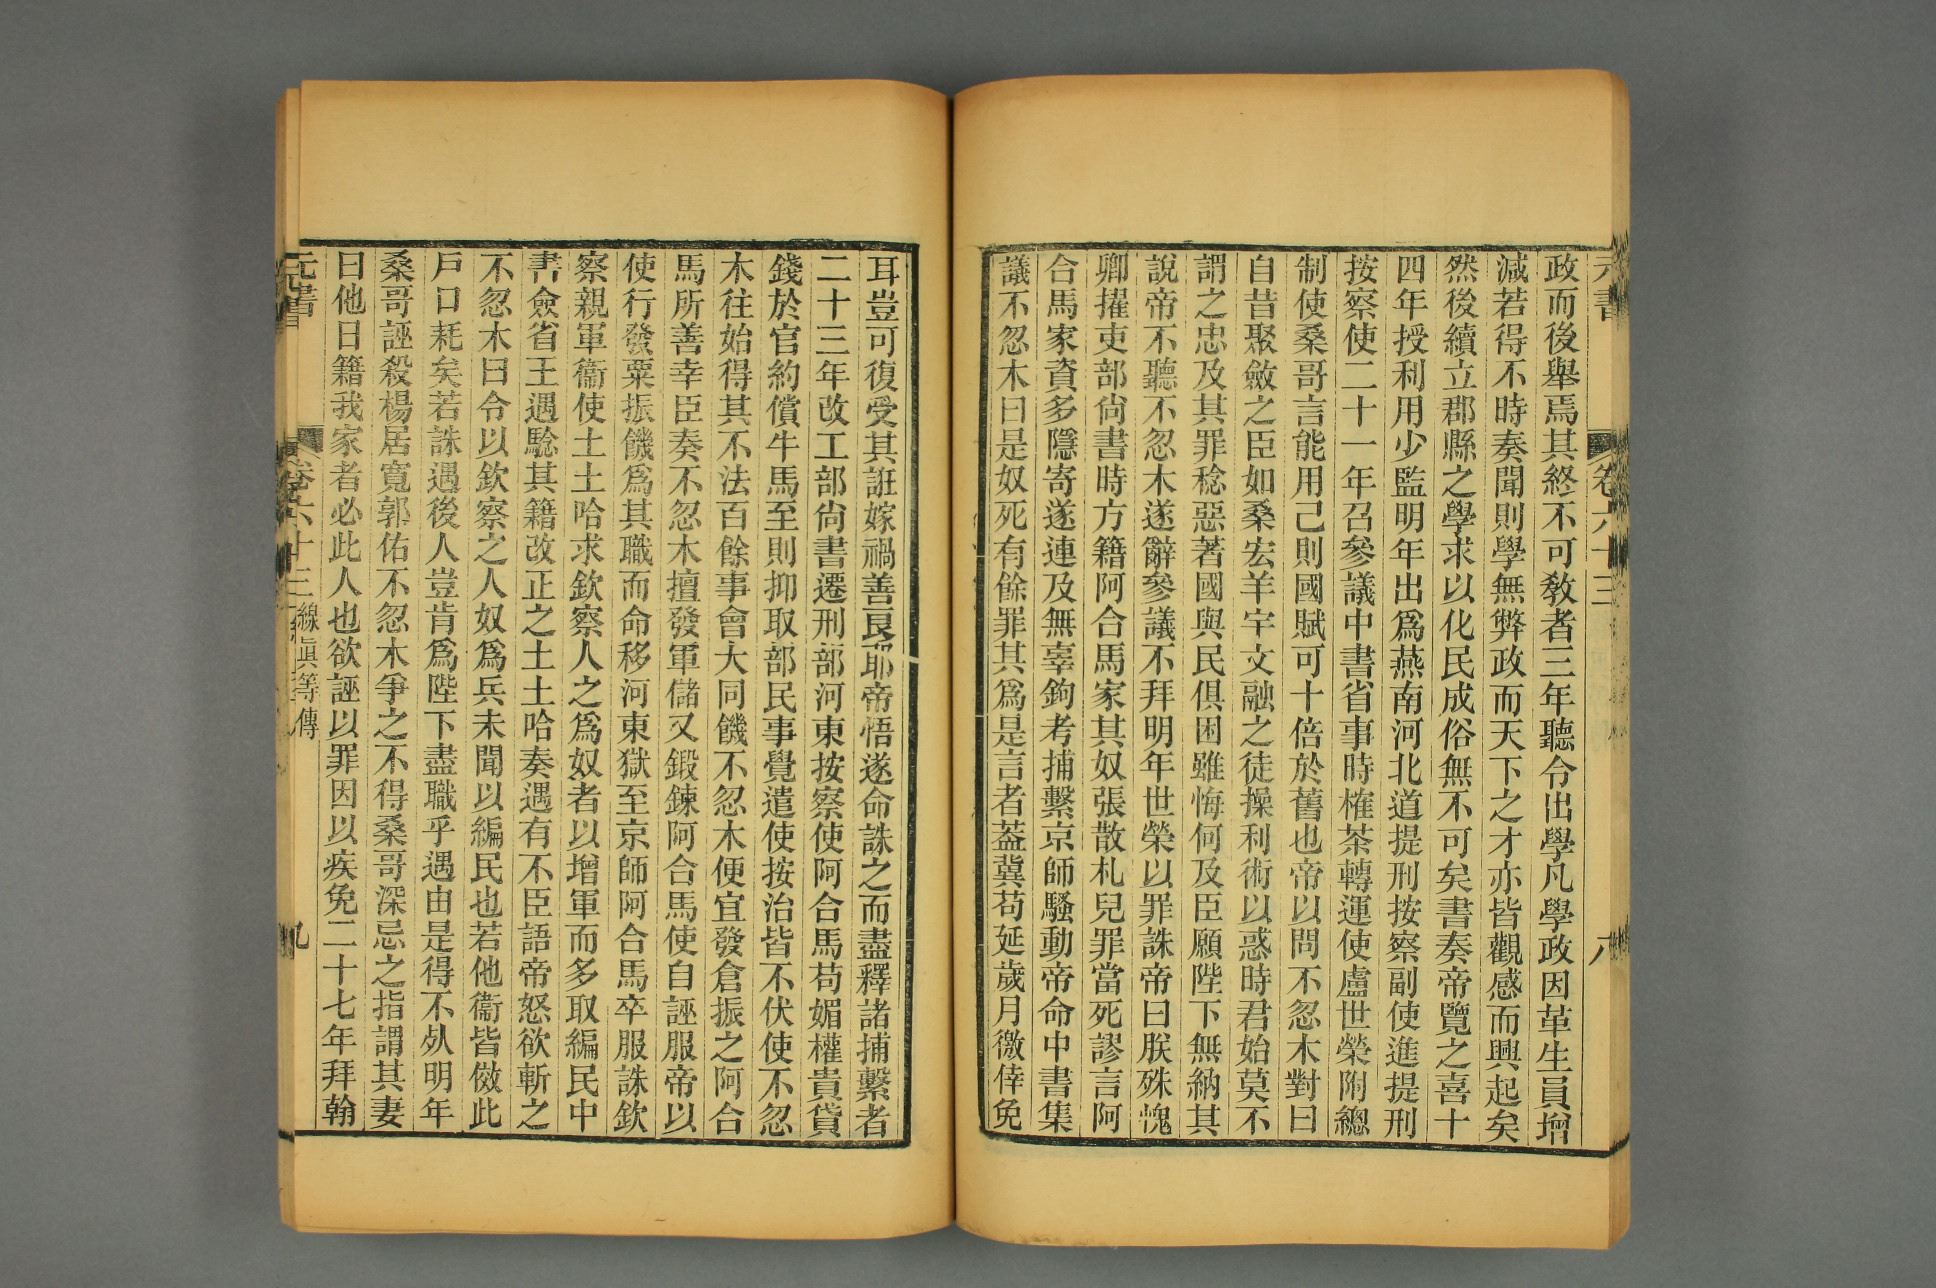 元書
卷六十三
八
政而後舉焉其終不可教者三年聽令出學凡學政因革生員增
減若得不時奏聞則學無弊政而天下之才亦皆觀感而興起矣
然後續立郡縣之學求以化民成俗無不可矣書奏帝覽之喜十
四年授利用少監明年出爲燕南河北道提刑按察副使進提刑
按察使二十一年召參議中書省事時榷茶轉運使盧世榮附總
制使桑哥言能用己則國賦可十倍於舊也帝以問不忽木對曰
自昔聚斂之臣如桑宏羊宇文融之徒操利術以惑時君始莫不
謂之忠及其罪稔惡著國與民俱困雖悔何及臣願陛下無納其
說帝不聽不忽木遂辭參議不拜明年世榮以罪誅帝曰朕殊愧
卿擢吏部尙書時方籍阿合馬家其奴張散札兒罪當死謬言阿
合馬家資多隱寄遂連及無辜鉤考捕繫京師騷動帝命中書集
議不忽木曰是奴死有餘罪其爲是言者葢冀苟延歲月徼倖免
耳豈可復受其誑嫁禍善良耶帝悟遂命誅之而盡釋諸捕繫者
二十三年改工部尙書遷刑部河東按察使阿合馬苟媚權貴貸
錢於官約償牛馬至則抑取部民事覺遣使按治皆不伏使不忽
木往始得其不法百餘事會大同饑不忽木便宜發倉振之阿合
馬所善幸臣奏不忽木擅發軍儲又鍛鍊阿合馬使自誣服帝以
使行發粟振饑爲其職而命移河東獄至京師阿合馬卒服誅欽
察親軍衞使土土哈求欽察人之爲奴者以增軍而多取編民中
書僉省王遇驗其籍改正之土土哈奏遇有不臣語帝怒欲斬之
不忽木曰令以欽察之人奴爲兵未聞以編民也若他衞皆倣此
戶口耗矣若誅遇後人豈肯爲陛下盡職乎遇由是得不㱙明年
桑哥誣殺楊居寬郭佑不忽木爭之不得桑哥深忌之指謂其妻
曰他日籍我家者必此人也欲誣以罪因以疾免二十七年拜翰
元書
卷六十三
線眞等傳
九